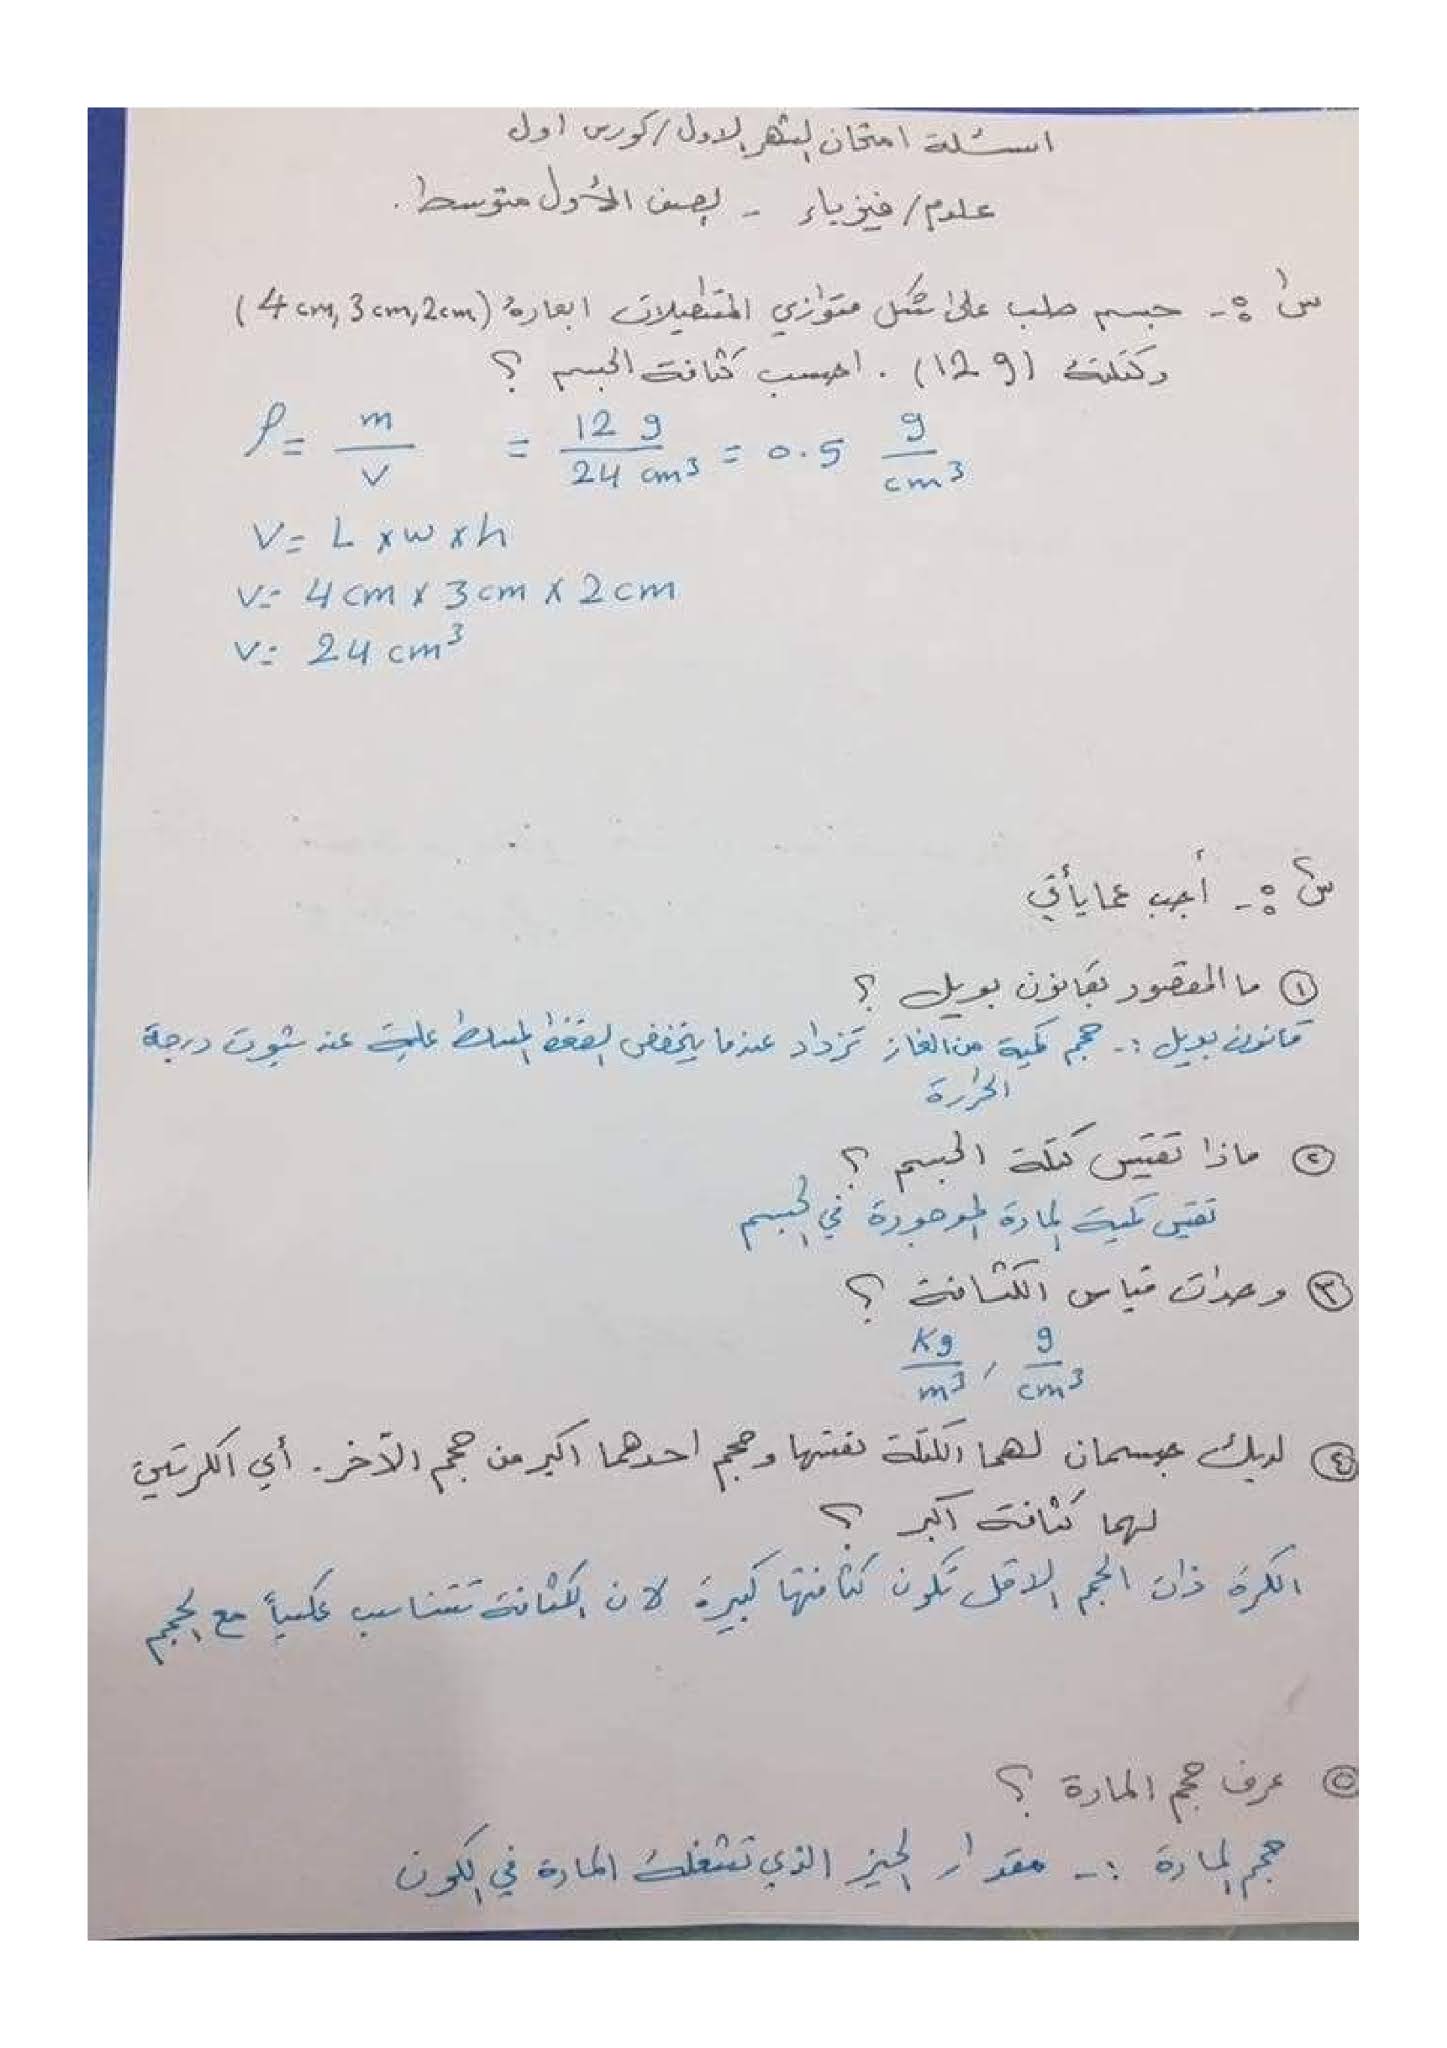 اسئلة امتحان الشهر الاول / كورس اول
علوم / فيزياء - الصف الأول متوسط.
س١ :- جسم صلب على شكل متوازي المستطيلات ابعاده (4 cm, 3 cm, 2 cm)
وكتلته (12 g) . احسب كثافة الجسم ؟
ρ = m/v = 12 g / 24 cm³ = 0.5 g/cm³
V = L × w × h
V = 4 cm × 3 cm × 2 cm
V = 24 cm³
س٢ :- أجب عما يأتي
① ما المقصود بقانون بويل ؟
قانون بويل :- حجم كمية من الغاز تزداد عندما ينخفض الضغط المسلط عليه عند ثبوت درجة
الحرارة
② ماذا تقيس كتلة الجسم ؟
تقيس كمية المادة الموجودة في الجسم
③ وحدات قياس الكثافة ؟
g/cm³ , Kg/m³
④ لديك جسمان لهما الكتلة نفسها وحجم احدهما اكبر من حجم الآخر. أي الكرتين
لهما كثافة اكبر ؟
الكرة ذات الحجم الاقل تكون كثافتها كبيرة لان الكثافة تتناسب عكسياً مع الحجم
⑤ عرف حجم المادة ؟
حجم المادة :- مقدار الحيز الذي تشغله المادة في الكون